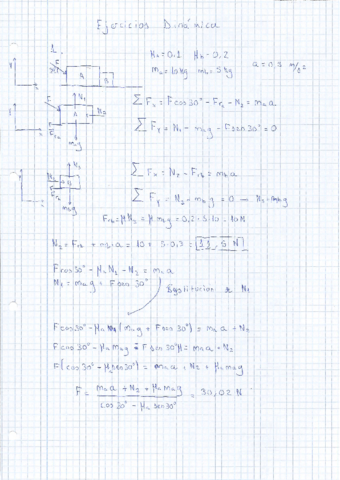 Ejercicios Dinámica
1.
μa = 0.1 μb = 0.2
ma = 10kg mb = 5kg a = 0,3 m/s²
ΣFx = Fcos30° - Fra - N2 = ma a
ΣFy = N1 - mag - Fsen30° = 0
ΣFx = N2 - Frb = mb a
ΣFy = N2 - mbg = 0 — N2 = mbg
Frb = μN2 = μ mbg = 0,2 · 5 · 10 = 10N
N2 = Frb + mb a = 10 + 5 · 0,3 = 11,5 N
Fcos30° - μaN1 - N2 = ma a
N1 = mag + Fsen 30°
Sustitucion de N1
Fcos30° - μa (mag + Fsen 30°) = ma a + N2
Fcos30° - μa mag - Fsen30°μ = ma a + N2
F(cos30° - μasen30°) = ma a + N2 + μa mag
F = ma a + N2 + μa mag / cos30° - μa sen30° = 30,02 N